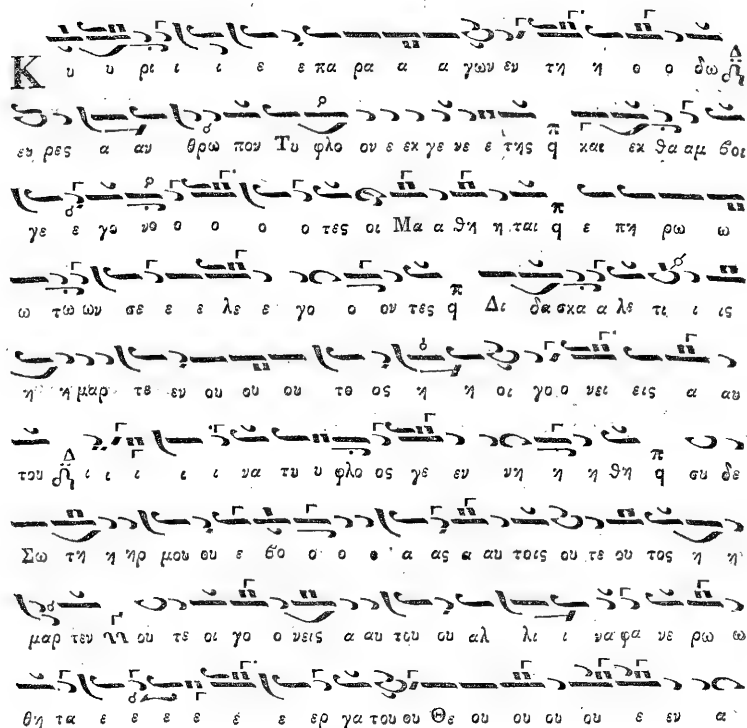 Κ υ υ ρι ι ι ε ε πα ρα α α γων εν τη η ο ο δω Δ
ευ ρες α αν θρω πον Τυ φλο ον ε εκ γε νε ε της π q και εκ θα αμ βοι
γε ε γο νο ο ο ο ο τες οι Μα α θη η ται π q ε πη ρω ω
ω τω ων σε ε ε λε ε γο ο ον τες π q Δι δα σκα α λε τι ι ις
η η μαρ τε εν ου ου ου το ος η η οι γο ο νει εις α αυ
του Δ ι ι ι ι ι να τυ υ φλο ος γε εν νη η η θη π q συ δε
Σω τη η ηρ μου ου ε βο ο ο ο α ας α αυ τοις ου τε ου τος η η
μαρ τεν ου τε οι γο ο νεις α αυ του ου αλ λι ι να φα νε ρω ω
θη τα ε ε ε ε ε ε ερ γα του ου Θε ου ου ου ου ου ε εν α